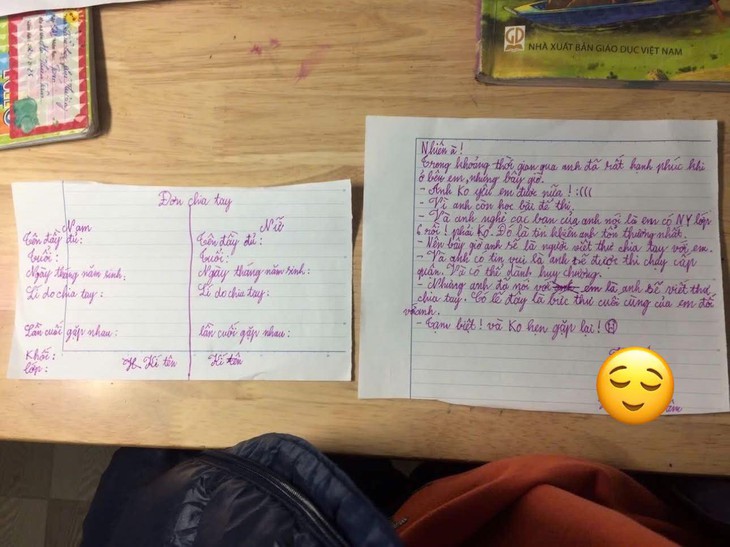 GD
NHÀ XUẤT BẢN GIÁO DỤC VIỆT NAM
Đơn chia tay
Nam
Tên đầy đủ:
Tuổi:
Ngày tháng năm sinh:
Lí do chia tay:
Lần cuối gặp nhau:
Khối:
lớp:
Kí tên
Nữ
Tên đầy đủ:
Tuổi:
Ngày tháng năm sinh:
Lí do chia tay:
lần cuối gặp nhau:
Kí tên
Nhiên à!
Trong khoảng thời gian qua anh đã rất hạnh phúc khi
ở bên em, nhưng bây giờ.
- Anh ko yêu em được nữa! :(((
- Vì anh còn học bài để thi.
- Và anh nghe các bạn của anh nói là em có NY lớp
6 rồi! phải ko. Đó là tin khiến anh tổn thương nhất.
- Nên bây giờ anh sẽ là người viết thư chia tay với em.
- Và anh có tin vui là anh sẽ được thi chạy cấp
quận. Và có thể giành huy chương.
- Nhưng anh đã nói với em là anh sẽ viết thư
chia tay. Có lẽ đây là bức thư cuối cùng của em đối
với anh.
- Tạm biệt! và ko hẹn gặp lại!